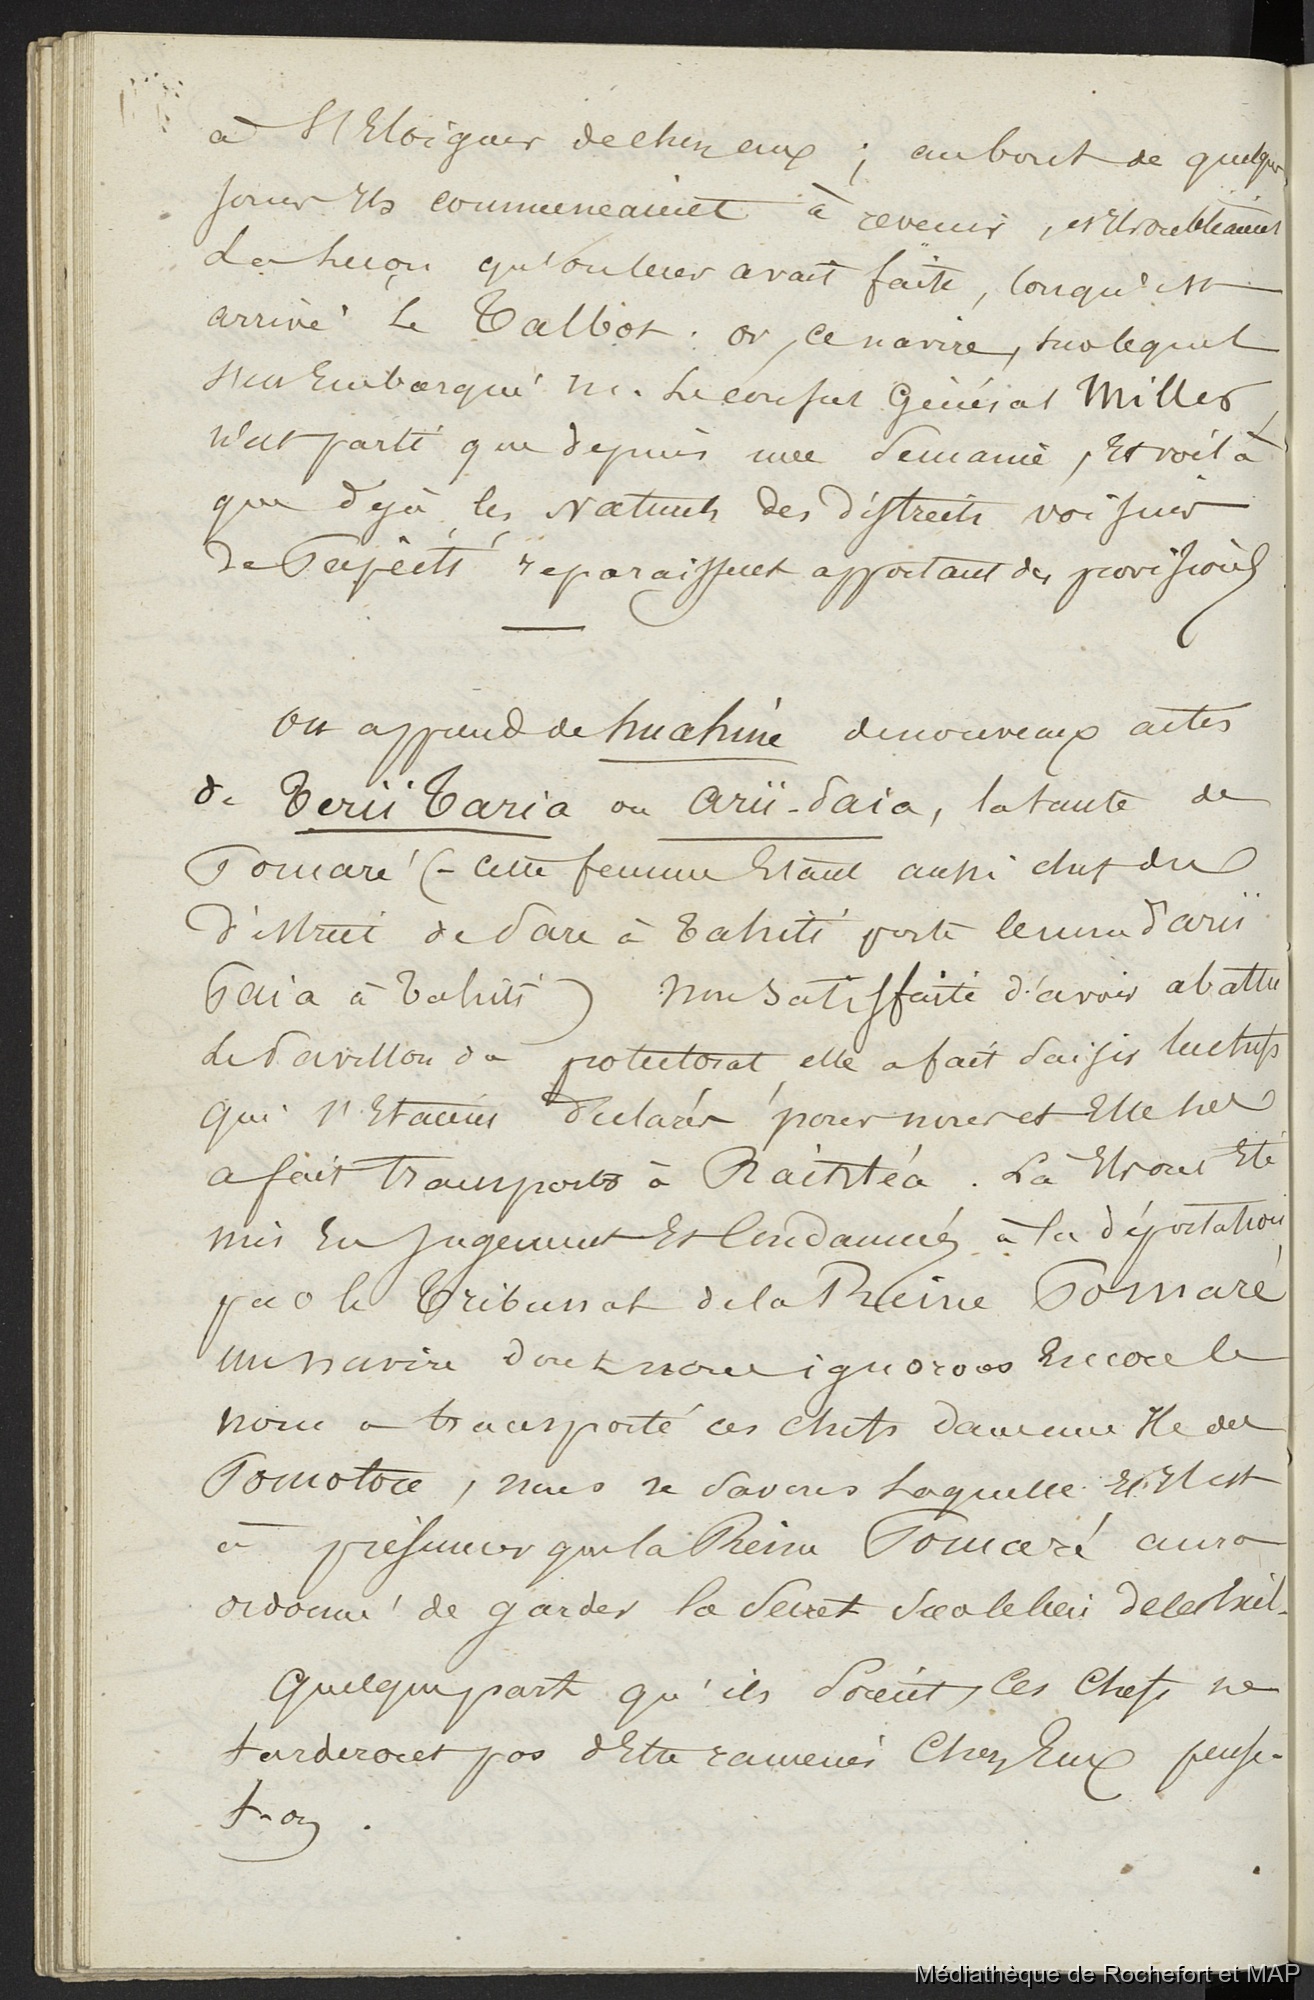 à s'Eloigner de chez eux ; au bout de quelques
jours Ils commencaient à revenir, et Ils oubliaient
La leçon qu'on leur avait faite, lorsqu'est
arrivé Le Talbot. or, ce navire, sur lequel
s'est Embarqué M. Le consul Général Miller,
n'est parti que depuis une Semaine, Et voilà
que déjà les Naturels des Districts voisins
de Papeété reparaissent apportant des provisions

On apprend de huahine de nouveaux actes
de Terii Taria ou Arii-paia, la tante de
Pomaré (- cette femme Etant aussi chef du
District de Pare à Tahiti porte le nom d'arii
Paia à Tahiti) Non Satisfaite d'avoir abattu
Le Pavillon du protectorat elle a fait Saisir les chefs
qui s'Etaient déclarés pour nous et Elle les
a fait transporter à Raiatéa. Là Ils ont Eté
mis En Jugement Et Condamnés à la déportation
par le Tribunal de la Reine Pomaré
un navire dont nous ignorons Encore le
nom a transporté ces chefs dans une Ile des
Pomotou, nous ne Savons Laquelle Et Il est
à présumer que la Reine Pomaré aura
ordonné de garder le Secret Sur le lieu de l'exil.
Quelque part qu'ils Soient, Ces Chefs ne
tarderont pas d'Etre ramenés Chez Eux pense-
t-on.
Médiathèque de Rochefort et MAP